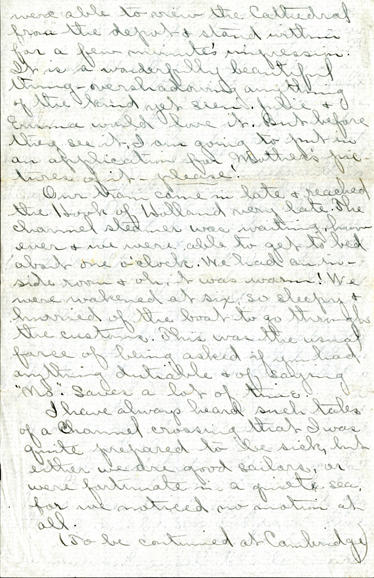 were able to view the Cathedral
from the depot & stand within
for a few minutes impression.
It is a wonderfully beautiful
thing - overshadowing anything
of the kind yet seen. &
Emma would love it. But before
they see it, I am going to put in
an application for Mother's pic-
tures of it - please!
Our train came in late & reached
the Hook of Holland very late. The
channel steamer was waiting how-
ever & we were able to get to bed
about one o'clock. We had an in-
side room & oh, it was warm! We
were wakened at six, so sleepy &
hurried off the boat to go through
the customs. This was the usual
farce of being asked if you had
anything dutiable & of saying
"No". Saves a lot of time.
I have always heard such tales
of a Channel crossing that I was
quite prepared to be sick, but
either we are good sailors, or
were fortunate in a quiet sea,
for we noticed no motion at
all.
(To be continued at Cambridge)